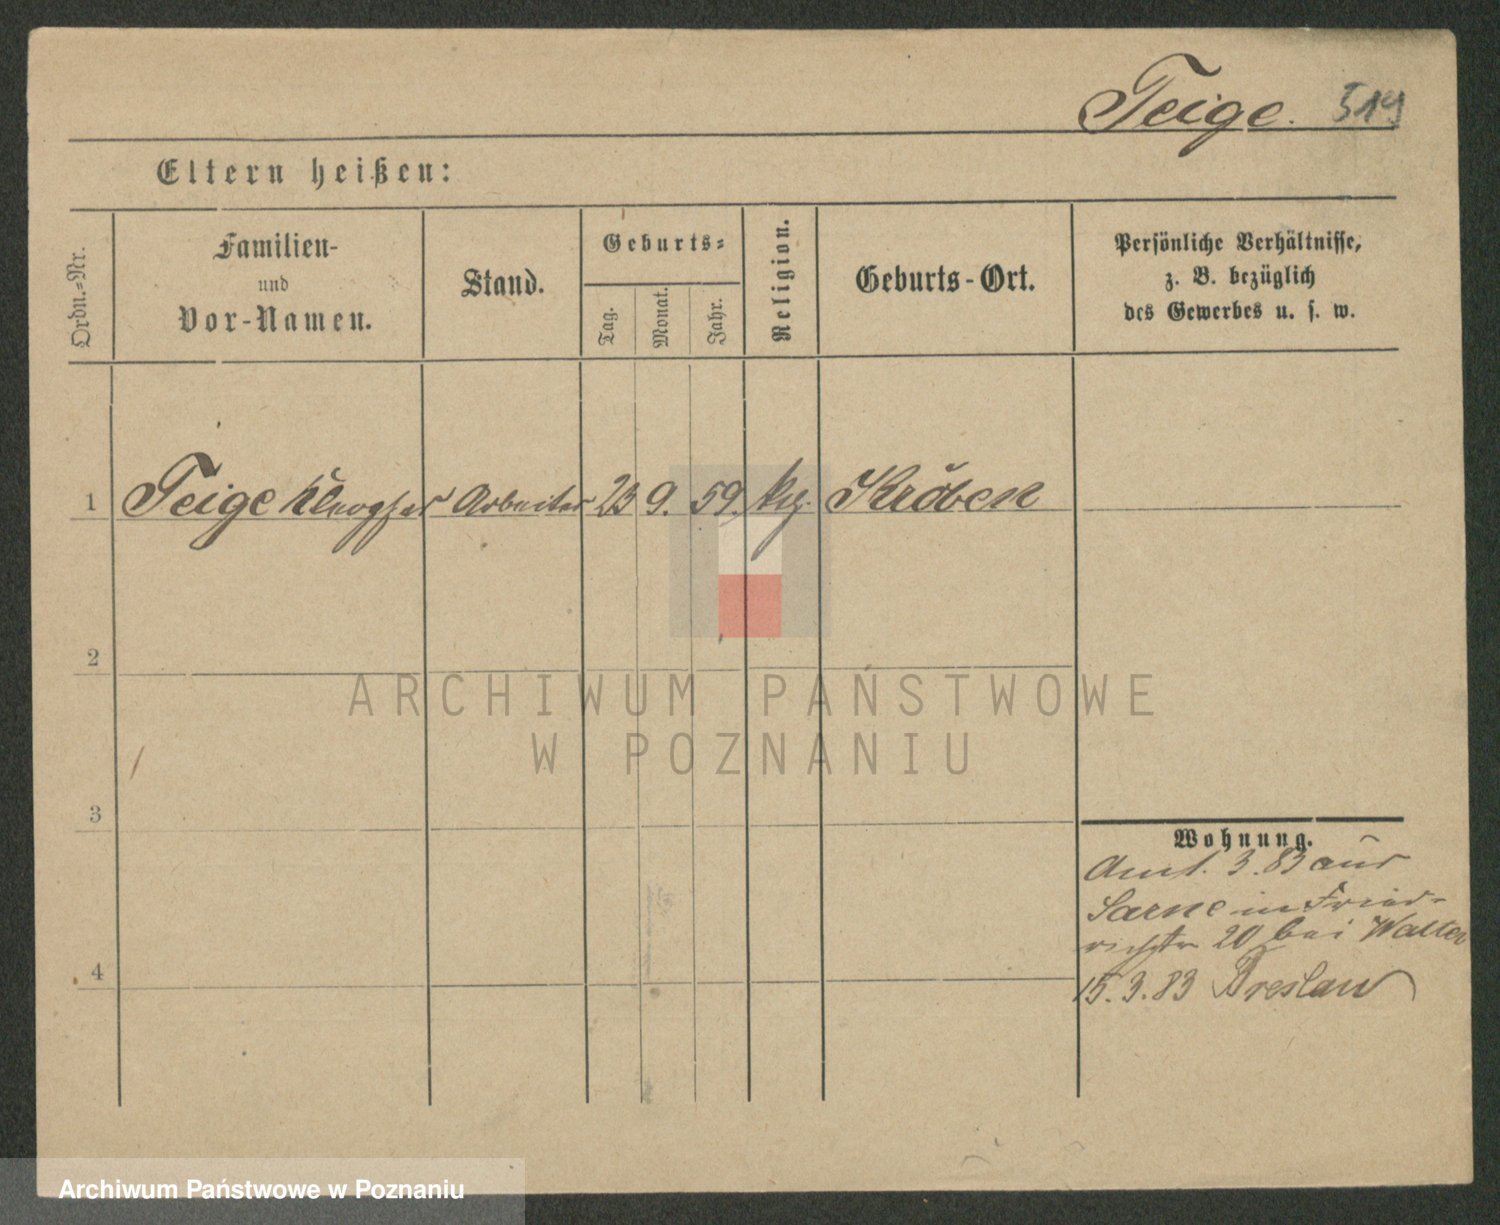 Teige. 519
Eltern heißen:
Ordn.-Nr.
Familien-
und
Vor-Namen.
Stand.
Geburts-
Tag.
Monat.
Jahr.
Religion.
Geburts-Ort.
Persönliche Verhältnisse,
z. B. bezüglich
des Gewerbes u. s. w.
1 Teige Arbeiter 23 9. 59. Kröben
2
ARCHIWUM PAŃSTWOWE
W POZNANIU
3
Wohnung.
3. 83 aus
Sarne in Fried-
richstr 20 bei Walter
4
15. 3. 83 Breslau
Archiwum Państwowe w Poznaniu